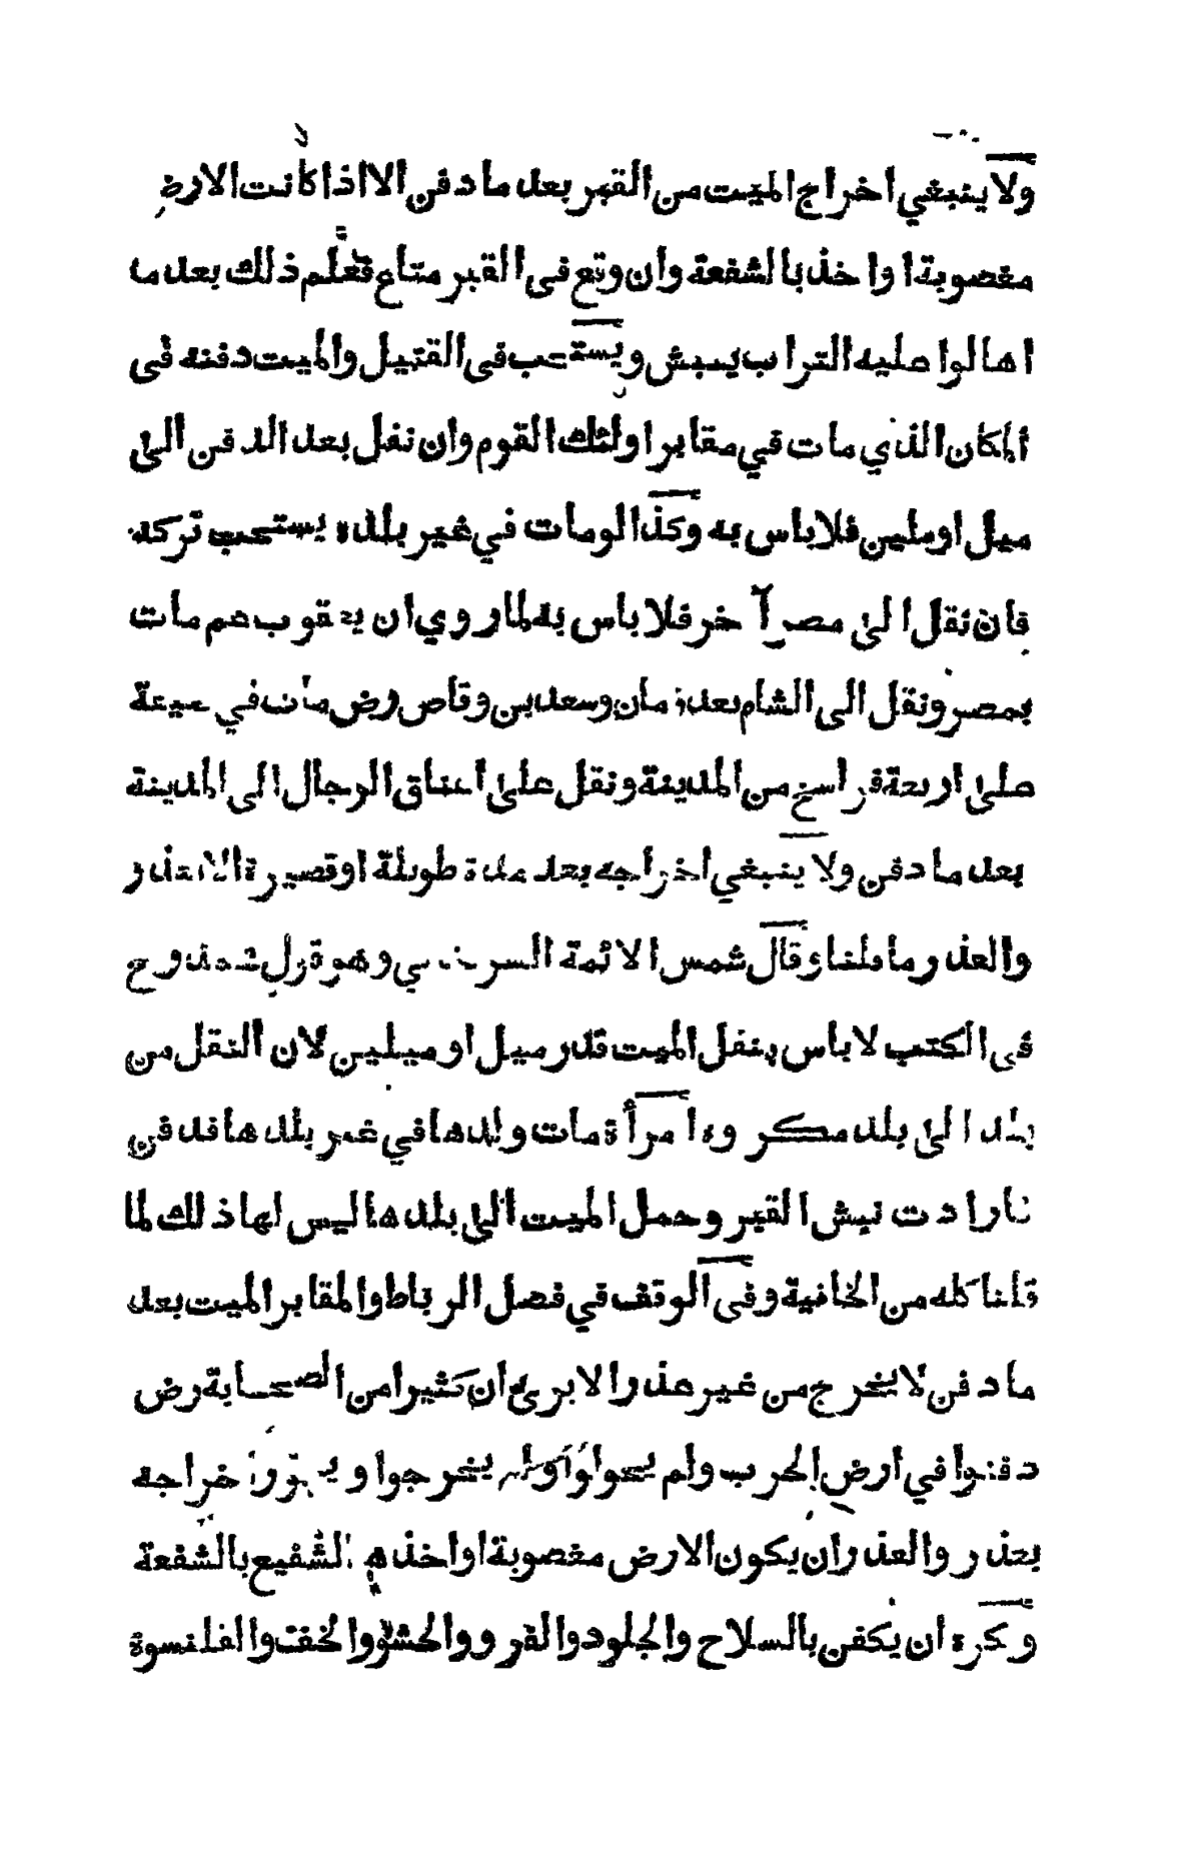 ولا ينبغي اخراج الميت من القبر بعد ما دفن الا اذا كانت الارض
مغصوبة او اخذ بالشفعة وان وقع فى القبر متاع فعلم ذلك بعد ما
اهالوا عليه التراب ينبش ويستحب فى القتيل والميت دفنه فى
المكان الذي مات في مقابر اولئك القوم وان نقل بعد الدفن الى
ميل او ميلين فلا باس به وكذا لو مات في غير بلده يستحب تركه
فان نقل الى مصر آخر فلا باس به لما روي ان يعقوب عم مات
بمصر ونقل الى الشام بعد زمان وسعد بن وقاص رض مات في ضيعة
على اربعة فراسخ من المدينة ونقل على اعناق الرجال الى المدينة
بعد ما دفن ولا ينبغي اخراجه بعد مدة طويلة او قصيرة الا بعذر
والعذر ما قلنا وقال شمس الائمة السرخسي وهو قول محمد رح
فى الكتب لا باس بنقل الميت قدر ميل او ميلين لان النقل من
بلد الى بلد مكروه امرأة مات ولدها في غير بلدها فدفن
فارادت نبش القبر وحمل الميت الى بلدها ليس لها ذلك لما
قلنا كله من الخانية وفى الوقف في فصل الرباط والمقابر الميت بعد
ما دفن لا يخرج من غير عذر الا يرى ان كثيرا من الصحابة رض
دفنوا في ارض الحرب ولم يحولوا ولم يخرجوا ويجوز اخراجه
بعذر والعذر ان يكون الارض مغصوبة او اخذها الشفيع بالشفعة
وكره ان يكفن بالسلاح والجلود والفرو والحشو والخف والقلنسوة